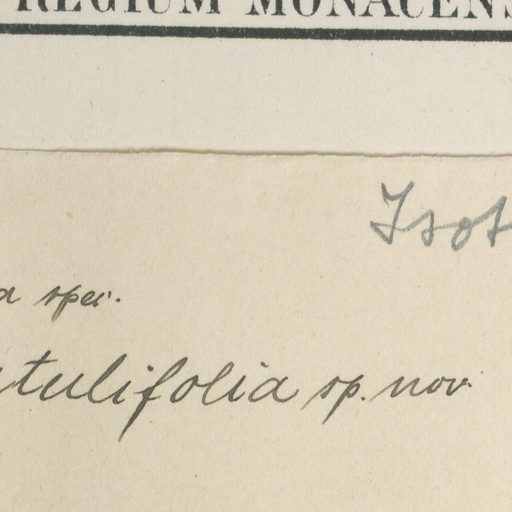 REGIUM MONACENS
Isot
a spec.
tulifolia sp. nov.